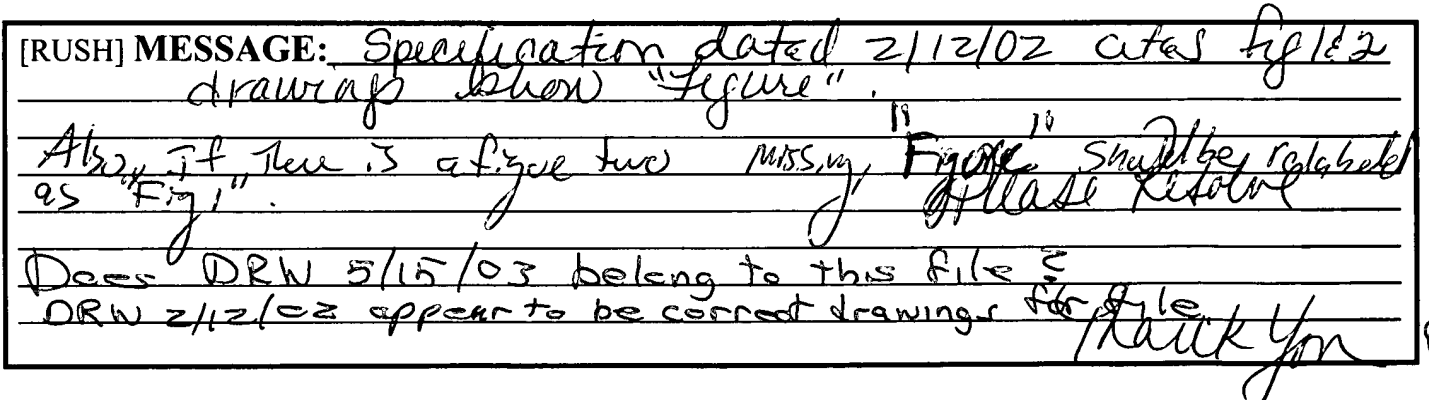 [RUSH] MESSAGE: Specification dated 2/12/02 cites fig 1&2
drawings show "Figure".
Also, If There is a figue two missing, "Figure" should be relabeled
as "Fig 1".
Please Resolve
Does DRW 5/15/03 belong to this file?
DRW 2/12/02 appear to be correct drawings for file
Thank You